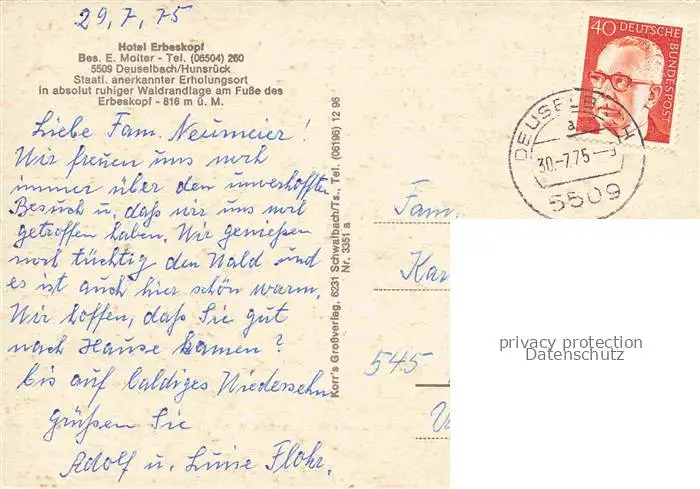 29.7.75
Hotel Erbeskopf
Bes. E. Molter - Tel. (06504) 260
5509 Deuselbach/Hunsrück
Staatl. anerkannter Erholungsort
in absolut ruhiger Waldrandlage am Fuße des
Erbeskopf - 816 m ü. M.
Liebe Fam. Neumeier!
Wir freuen uns noch
immer über den unverhofften
Besuch u. daß wir uns noch
getroffen haben. Wir genießen
noch tüchtig den Wald und
es ist auch hier schön warm.
Wir hoffen, daß Sie gut
nach Hause kamen?
bis auf baldiges Wiedersehn
grüßen Sie
Adolf u. Luise Flohr.
Korr's Großverlag, 6231 Schwalbach/Ts., Tel. (06196) 12 96
Nr. 3351 a
40 DEUTSCHE
BUNDESPOST
DEUSELBACH
a
30.-7.75-9
5509
Fam.
Kar
545
privacy protection
Datenschutz